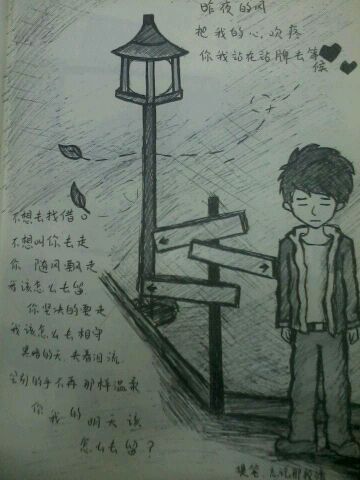 昨夜的风
把我的心吹疼
你我站在站牌去等
候
不想去找借。
不想叫你去走
你 随风飘走
我该怎么去留
你坚决的要走
我该怎么去相守
黑暗的天 夹着泪流
分别的手不再那样温柔
你 我的 明天该
怎么去留?